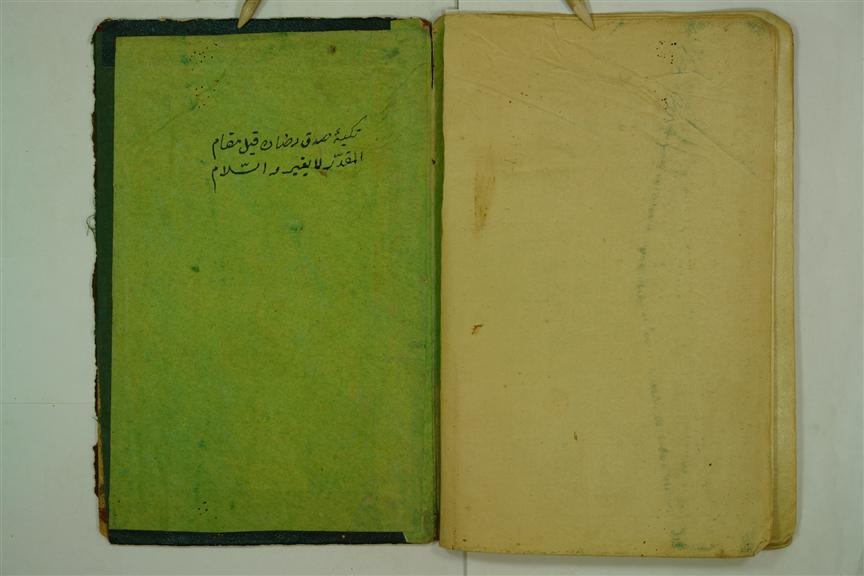 تكيهٔ صدق رضادن قيل مقام
المقدّر لا يغير والسّلام